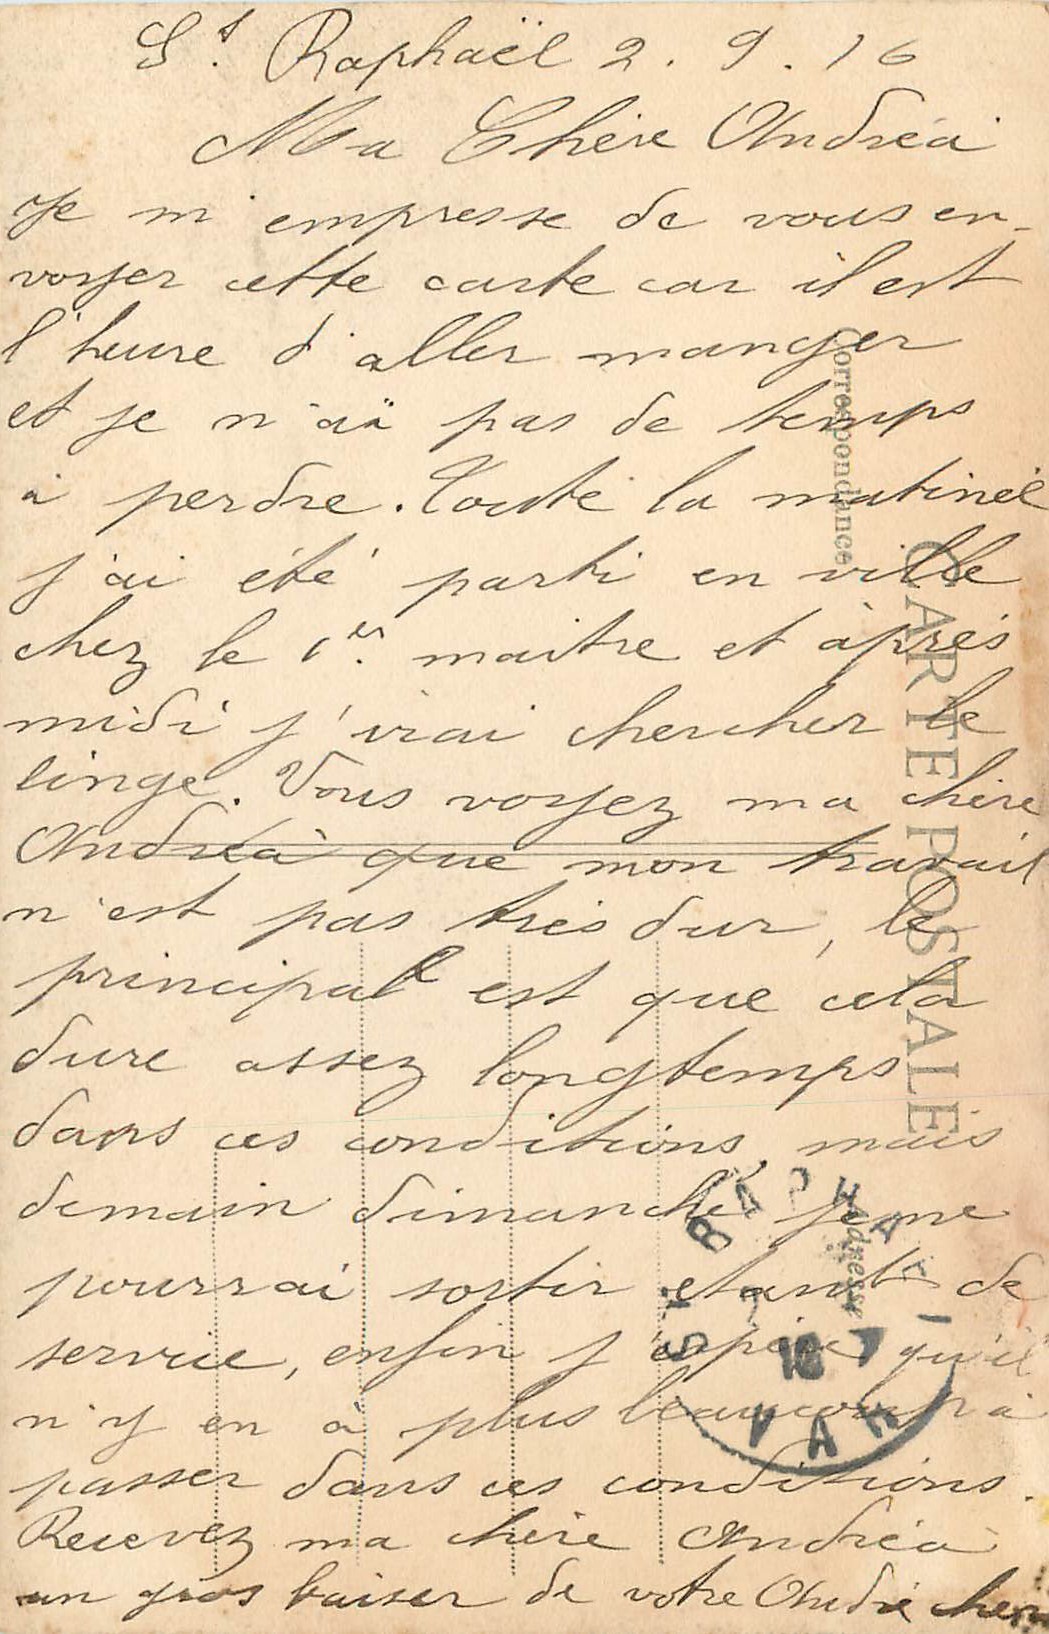 St. Raphaël 2. 9. 16
Ma Chère Andréa
Je m'empresse de vous en-
voyer cette carte car il est
l'heure d'aller manger
et je n'ai pas de temps
à perdre. Toute la matinée
j'ai été parti en ville
chez le 1er. maitre et àprés
midi j'irai chercher le
linge. Vous voyez ma chère
Andréa que mon travail
n'est pas très dur, le
principal est que cela
dure assez longtemps
dans ces conditions, mais
demain dimanche je ne
pourrai sortir etant de
service, enfin j'espère qu'il
n'y en à plus beaucoup à
passer dans ces conditions.
Recevez ma chère Andréa
un gros baiser de votre André cheri
Correspondance
CARTE POSTALE
Adresse
ST RAPHA
VAR